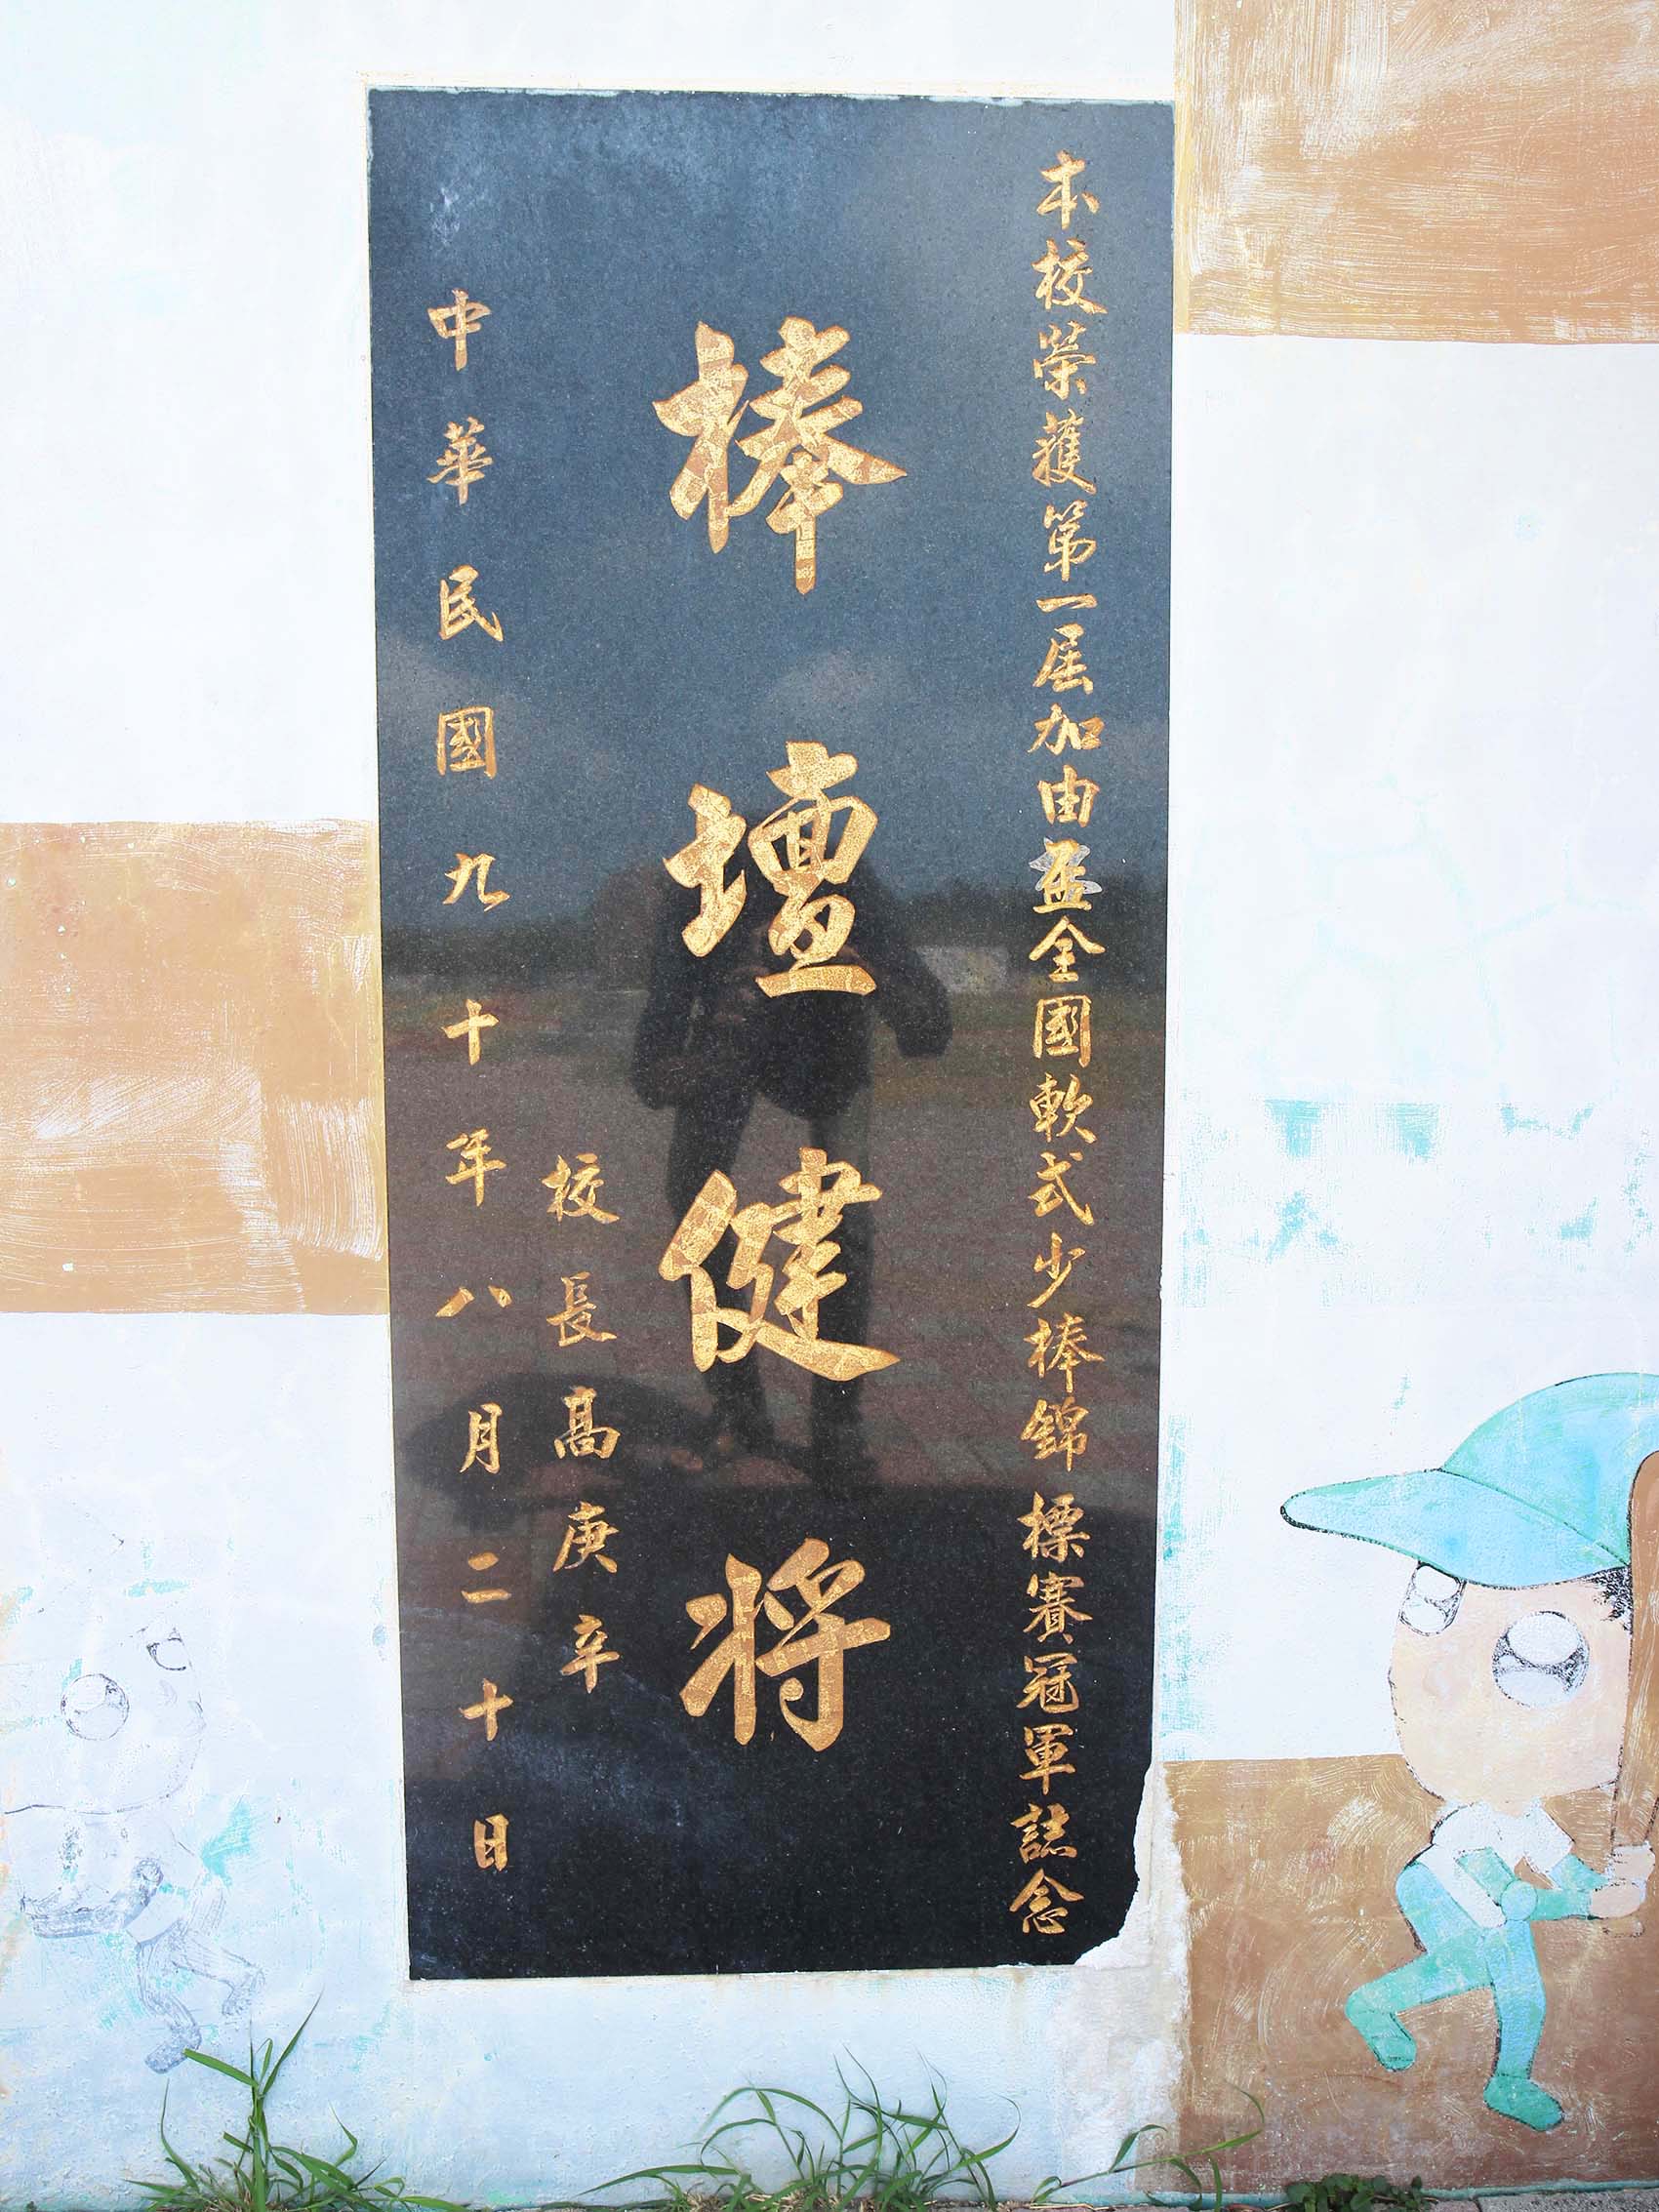 本校榮獲第一屆加由盃全國軟式少棒錦標賽冠軍誌念
棒壇健將
校長高庚辛
中華民國九十年八月二十日